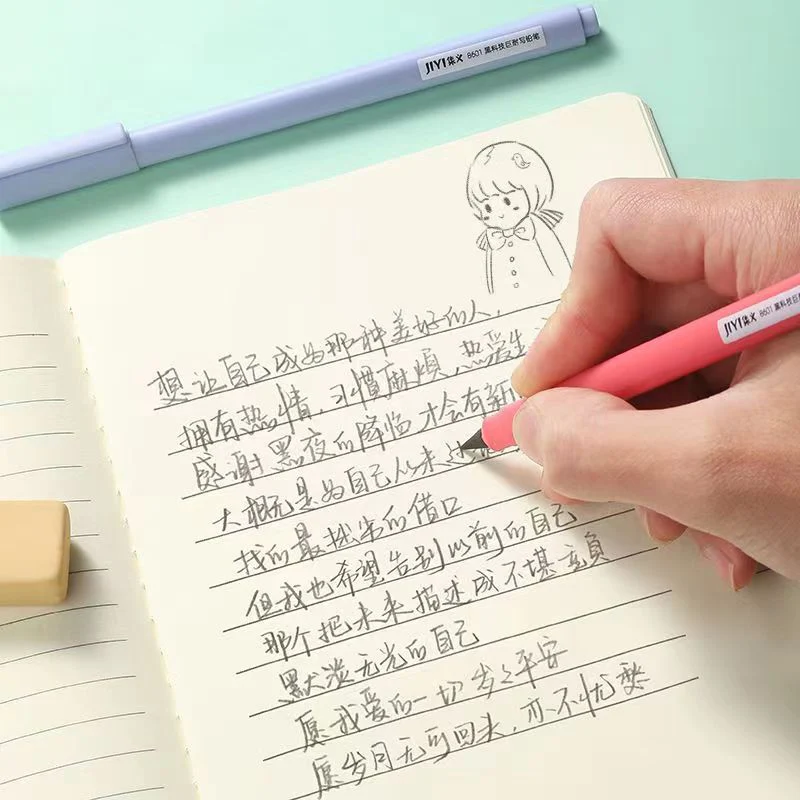 JIYI集义 8601 黑科技巨耐写铅笔
JIYI集义 8601 黑科技巨
想让自己成为那种美好的人,
拥有热情,习惯麻烦,热爱生
感谢黑夜的降临才会有新
大概是为自己从来
找的最拙劣的借口
但我也希望告别以前的自己
那个把未来描述成不堪
黯淡无光的自己
愿我爱的一切岁岁平安
愿岁月无可回头,亦不忧愁